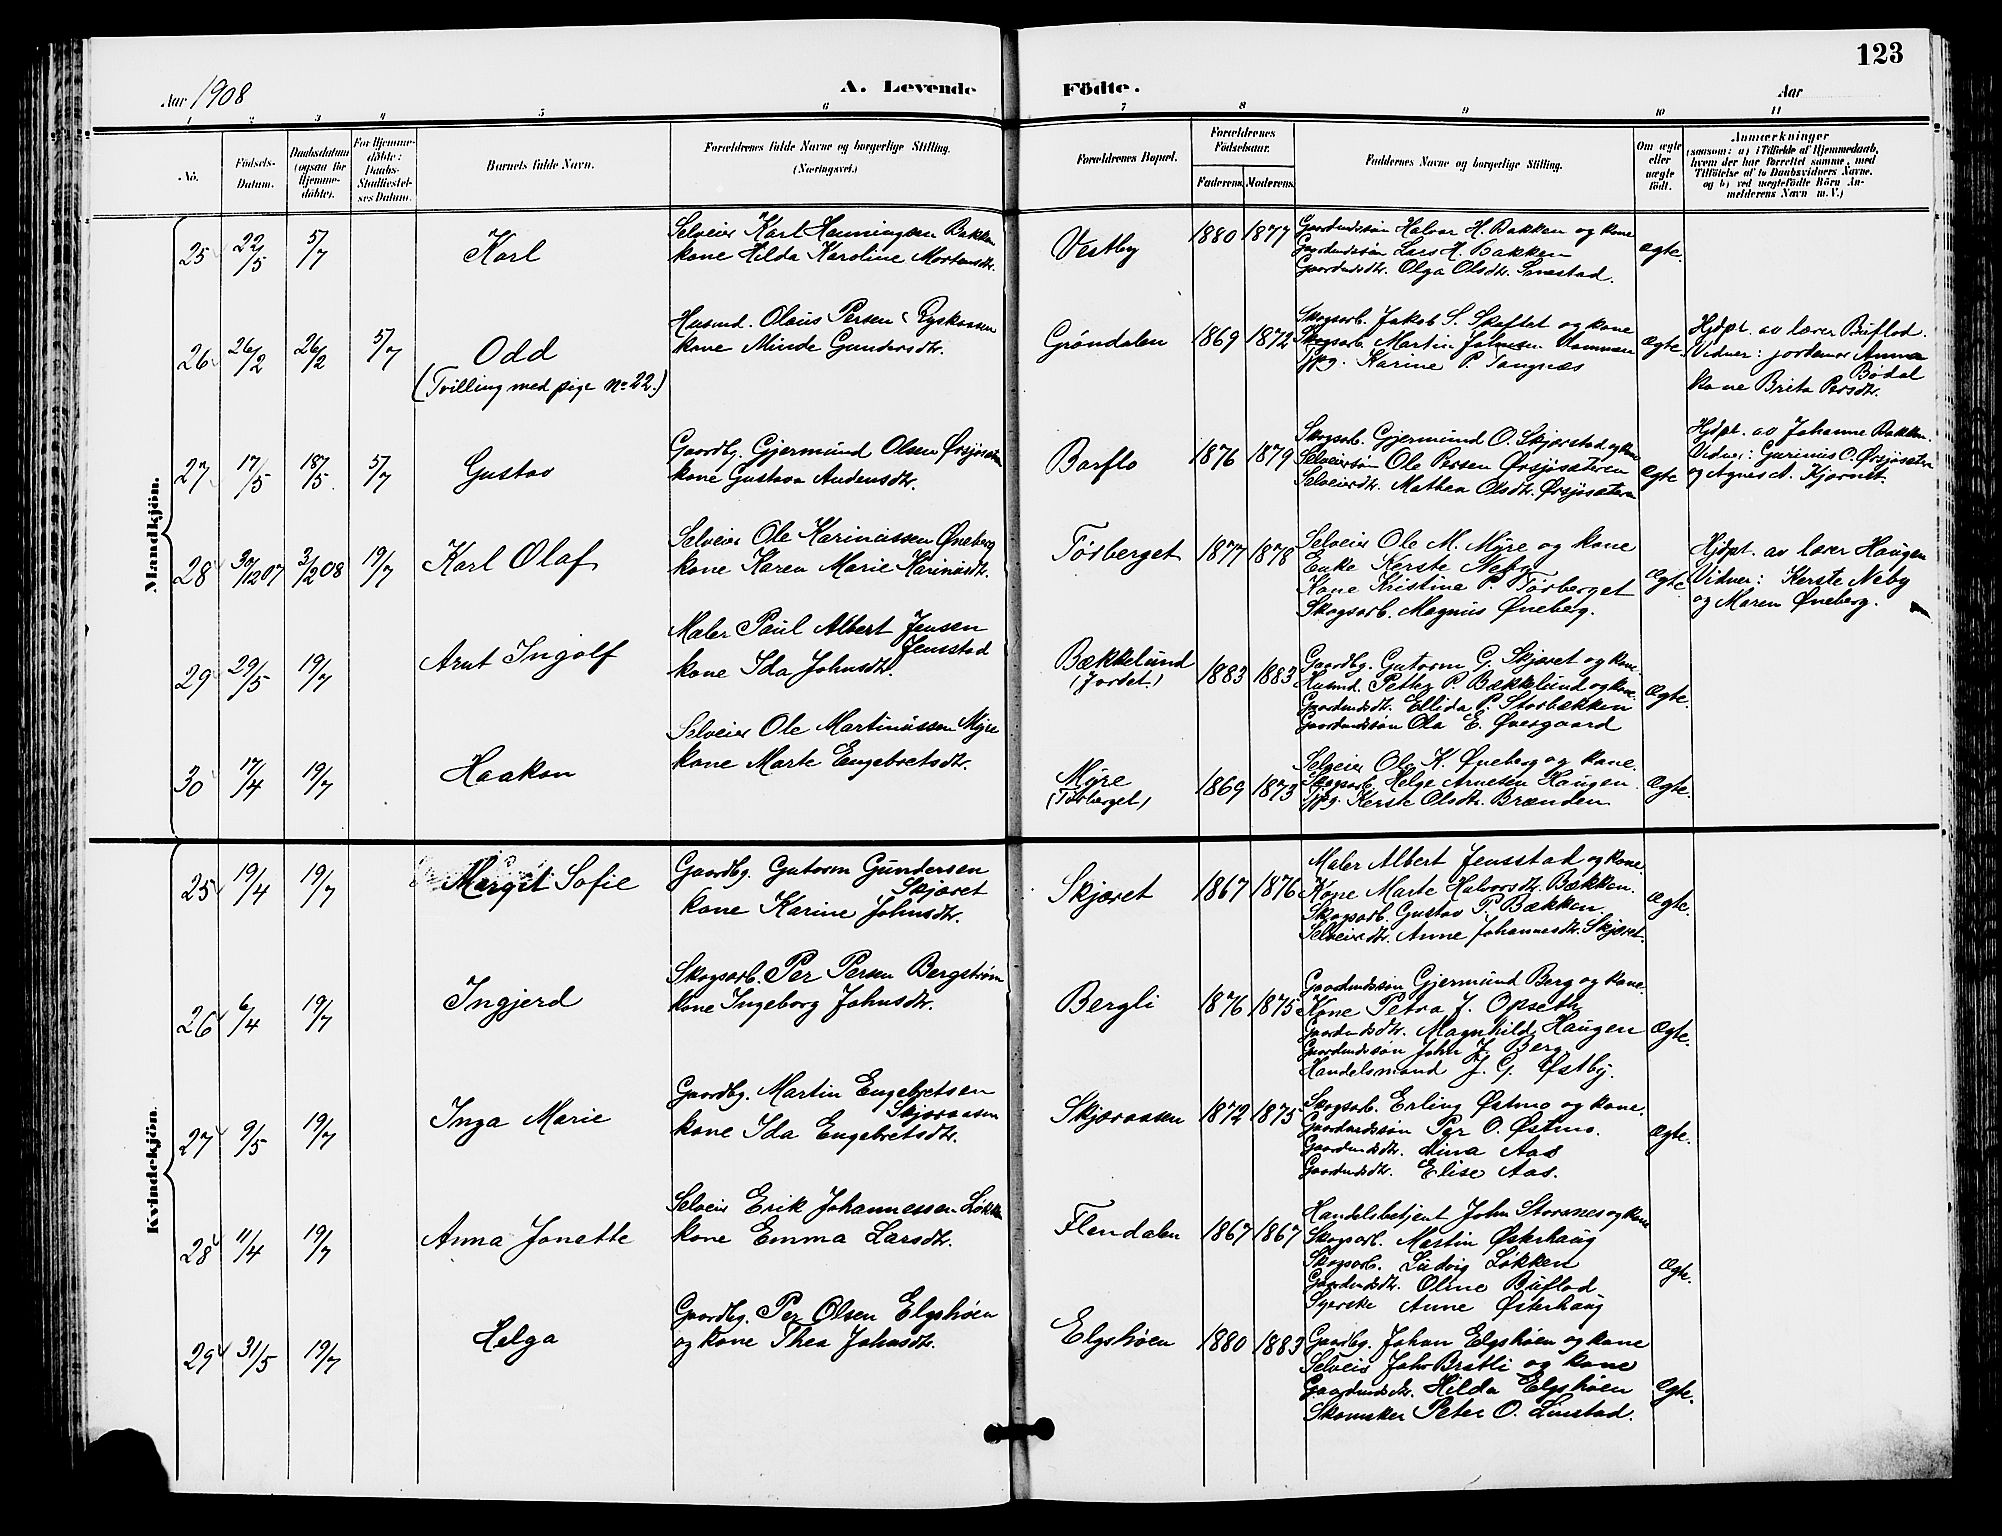 123
Aar 1908
A. Levende Födte.
Aar
1 2 3 4 5 6 7 8 9 10 11
No.
Födsels-Datum.
Daabsdatum (ogsaa for Hjemmedöbte).
For Hjemmedöbte: Daabs-Stadfæstelses Datum.
Barnets fulde Navn.
Forældrenes fulde Navne og borgerlige Stilling.
(Næringsvei.)
Forældrenes Bopæl.
Forældrenes Födselsaar.
Faderens. Moderens.
Faddernes Navne og borgerlige Stilling.
Om ægte eller uægte födt.
Anmærkninger
(saasom: a) i Tilfælde af Hjemmedaab, hvem der har forrettet samme, med Tilföielse af to Daabsvidners Navne, og b) ved uægtefödte Börn Anmelderens Navn m. V.)
Mandkjön.
25 22/5 5/7 Karl
Selveier Karl Henningsen Bakken
kone Hilda Karoline Mortensdtr.
Vestby 1880 1877
Gaardmdssön Halvor H. Bakken og kone
Gaardmdssön Lars H. Bakken
Gaardmdsdtr. Olga Olsdtr. Snestad.
Ægte.
26 26/2 26/2 5/7 Odd
(Tvilling med pige No 22.)
Husmd. Olaus Persen Ryskaasen
kone Minda Gundersdtr.
Grøndalen 1869 1872
Skogsarb. Jakob S. Skeftet og kone
Skogsarb. Martin Johnsen
Tjpg. Karine P. Tangnæs
Ægte.
Hjdpt. av lærer Buflod.
Vidner: jordemor Anna Bødal
kone Brita Persdtr.
27 17/5 18/5 5/7 Gustav
Gaardbg. Gjermund Olsen Ørsjøsæteren
kone Gustava Andensdtr.
Barflo 1876 1879
Skogsarb. Gjermund O. Skjærstad og kone
Selveiersön Ole Persen Ørsjøsæteren
Selveierdtr. Mathea Olsdtr. Ørsjøsæteren
Ægte
Hjdpt. av Johanne Bakken.
Vidner: Gurinus O. Ørsjøsæteren
og Agnes A. Kjærnet.
28 30/12 07 3/2 08 19/7 Karl Olaf
Selveier Ole Karinussen Øneberg
kone Karen Marie Karinusdtr.
Tørberget 1877 1878
Selveier Ole M. Myre og kone
Enke Kerste Neby
Kone Kristina P. Tørberget
Skogsarb. Magnus Øneberg.
Ægte
Hjdpt. av lærer Haugen
Vidner: Kerste Neby
og Maren Øneberg.
29 29/5 19/7 Arnt Ingolf
Maler Paul Albert Jensen Jensstad
kone Ida Johnsdtr.
Bækkelund
(Jordet.) 1883 1883
Gaardbg. Gutorm G. Skjæret og kone.
Husmd. Petter P. Bækkelund og kone.
Gaardmdsdtr. Ellida P. Storbækken
Gaardmdssön Ola E. Øvergaard
Ægte.
30 17/4 19/7 Haakon
Selveier Ole Martinussen Myre
kone Marte Engebretsdtr.
Myre
(Tørberget) 1869 1873
Selveier Ole K. Øneberg og kone.
Skogsarb. Helge Arnesen Haugen.
Tjpg. Kerste Olsdtr. Brænden
Ægte.
Kvindekjön.
25 19/4 19/7 Margit Sofie
Gaardbg. Gutorm Gundersen Skjæret
kone Karine Johnsdtr.
Skjæret 1867 1876
Maler Albert Jensstad og kone.
Kone Marte Halvorsdtr. Bækken.
Skogsarb. Gustav P. Bækken.
Selveierdtr. Anne Johannesdtr. Skjæret.
Ægte.
26 6/4 19/7 Ingjerd
Skogsarb. Per Persen Bergstrøm
kone Ingeborg Johnsdtr.
Bergli 1876 1875
Gaardmdssön Gjermund Berg og kone.
Kone Petra J. Opseth
Gaardmdsdtr. Magnhild Haugen
Gaardmdssön John J. Berg
Handelsmand J. G. Østby.
Ægte.
27 9/5 19/7 Inga Marie
Gaardbg. Martin Engebretsen Skjæraasen
kone Ida Engebretsdtr.
Skjæraasen 1872 1875
Skogsarb. Erling Østmo og kone.
Gaardmdssön Per O. Østmo.
Gaardmdsdtr. Lina Aas
Gaardmdsdtr. Elise Aas.
Ægte.
28 11/4 19/7 Anna Jonette
Selveier Erik Johannessen Løkken
kone Emma Larsdtr.
Flendalen 1867 1867
Handelsbetjent John Stornes og kone
Skogsarb. Martin Østerhaug
Skogsarb. Ludvig Løkken
Gaardmdsdtr. Oline Buflod
Syerske Anne Østerhaug
Ægte.
29 31/5 19/7 Helga
Gaardbg. Per Olsen Elgshøen
og kone Thea Johnsdtr.
Elgshøen 1880 1883
Gaardbg. Johan Elgshøen og kone
Selveier Joh. Bratli og kone
Gaardmdsdtr. Hilda Elgshøen
Skomaker Peter O. Linstad.
Ægte.